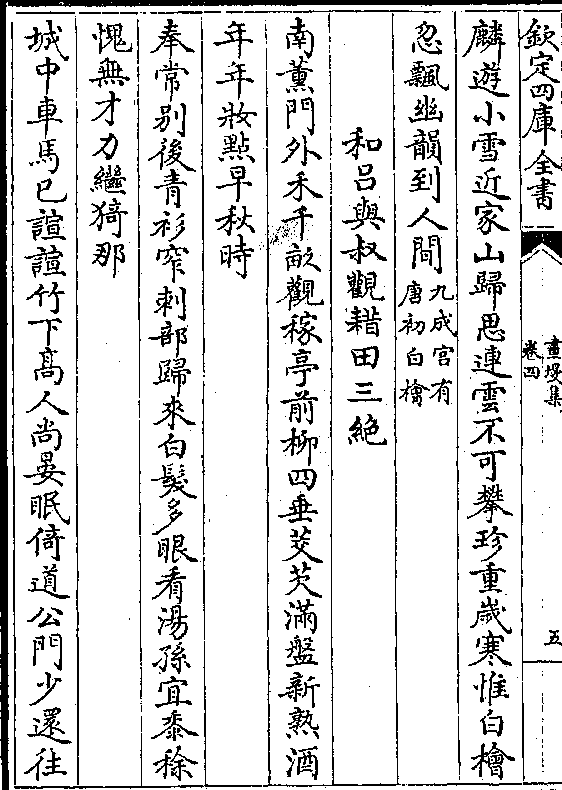 欽定四庫全書
畫墁集
卷四
五
麟遊小雪近家山歸思連雲不可攀珍重歲寒惟白檜
忽飄幽韻到人間九成宮有
唐初白檜
和呂與叔觀耤田三絶
南薰門外禾千畝觀稼亭前柳四垂芡芡滿盤新熟酒
年年妝點早秋時
奉常别後青衫窄刺部歸來白髮多眼看湯孫宜黍稌
愧無才力繼猗那
城中車馬已諠諠竹下高人尚晏眠倚道公門少還往